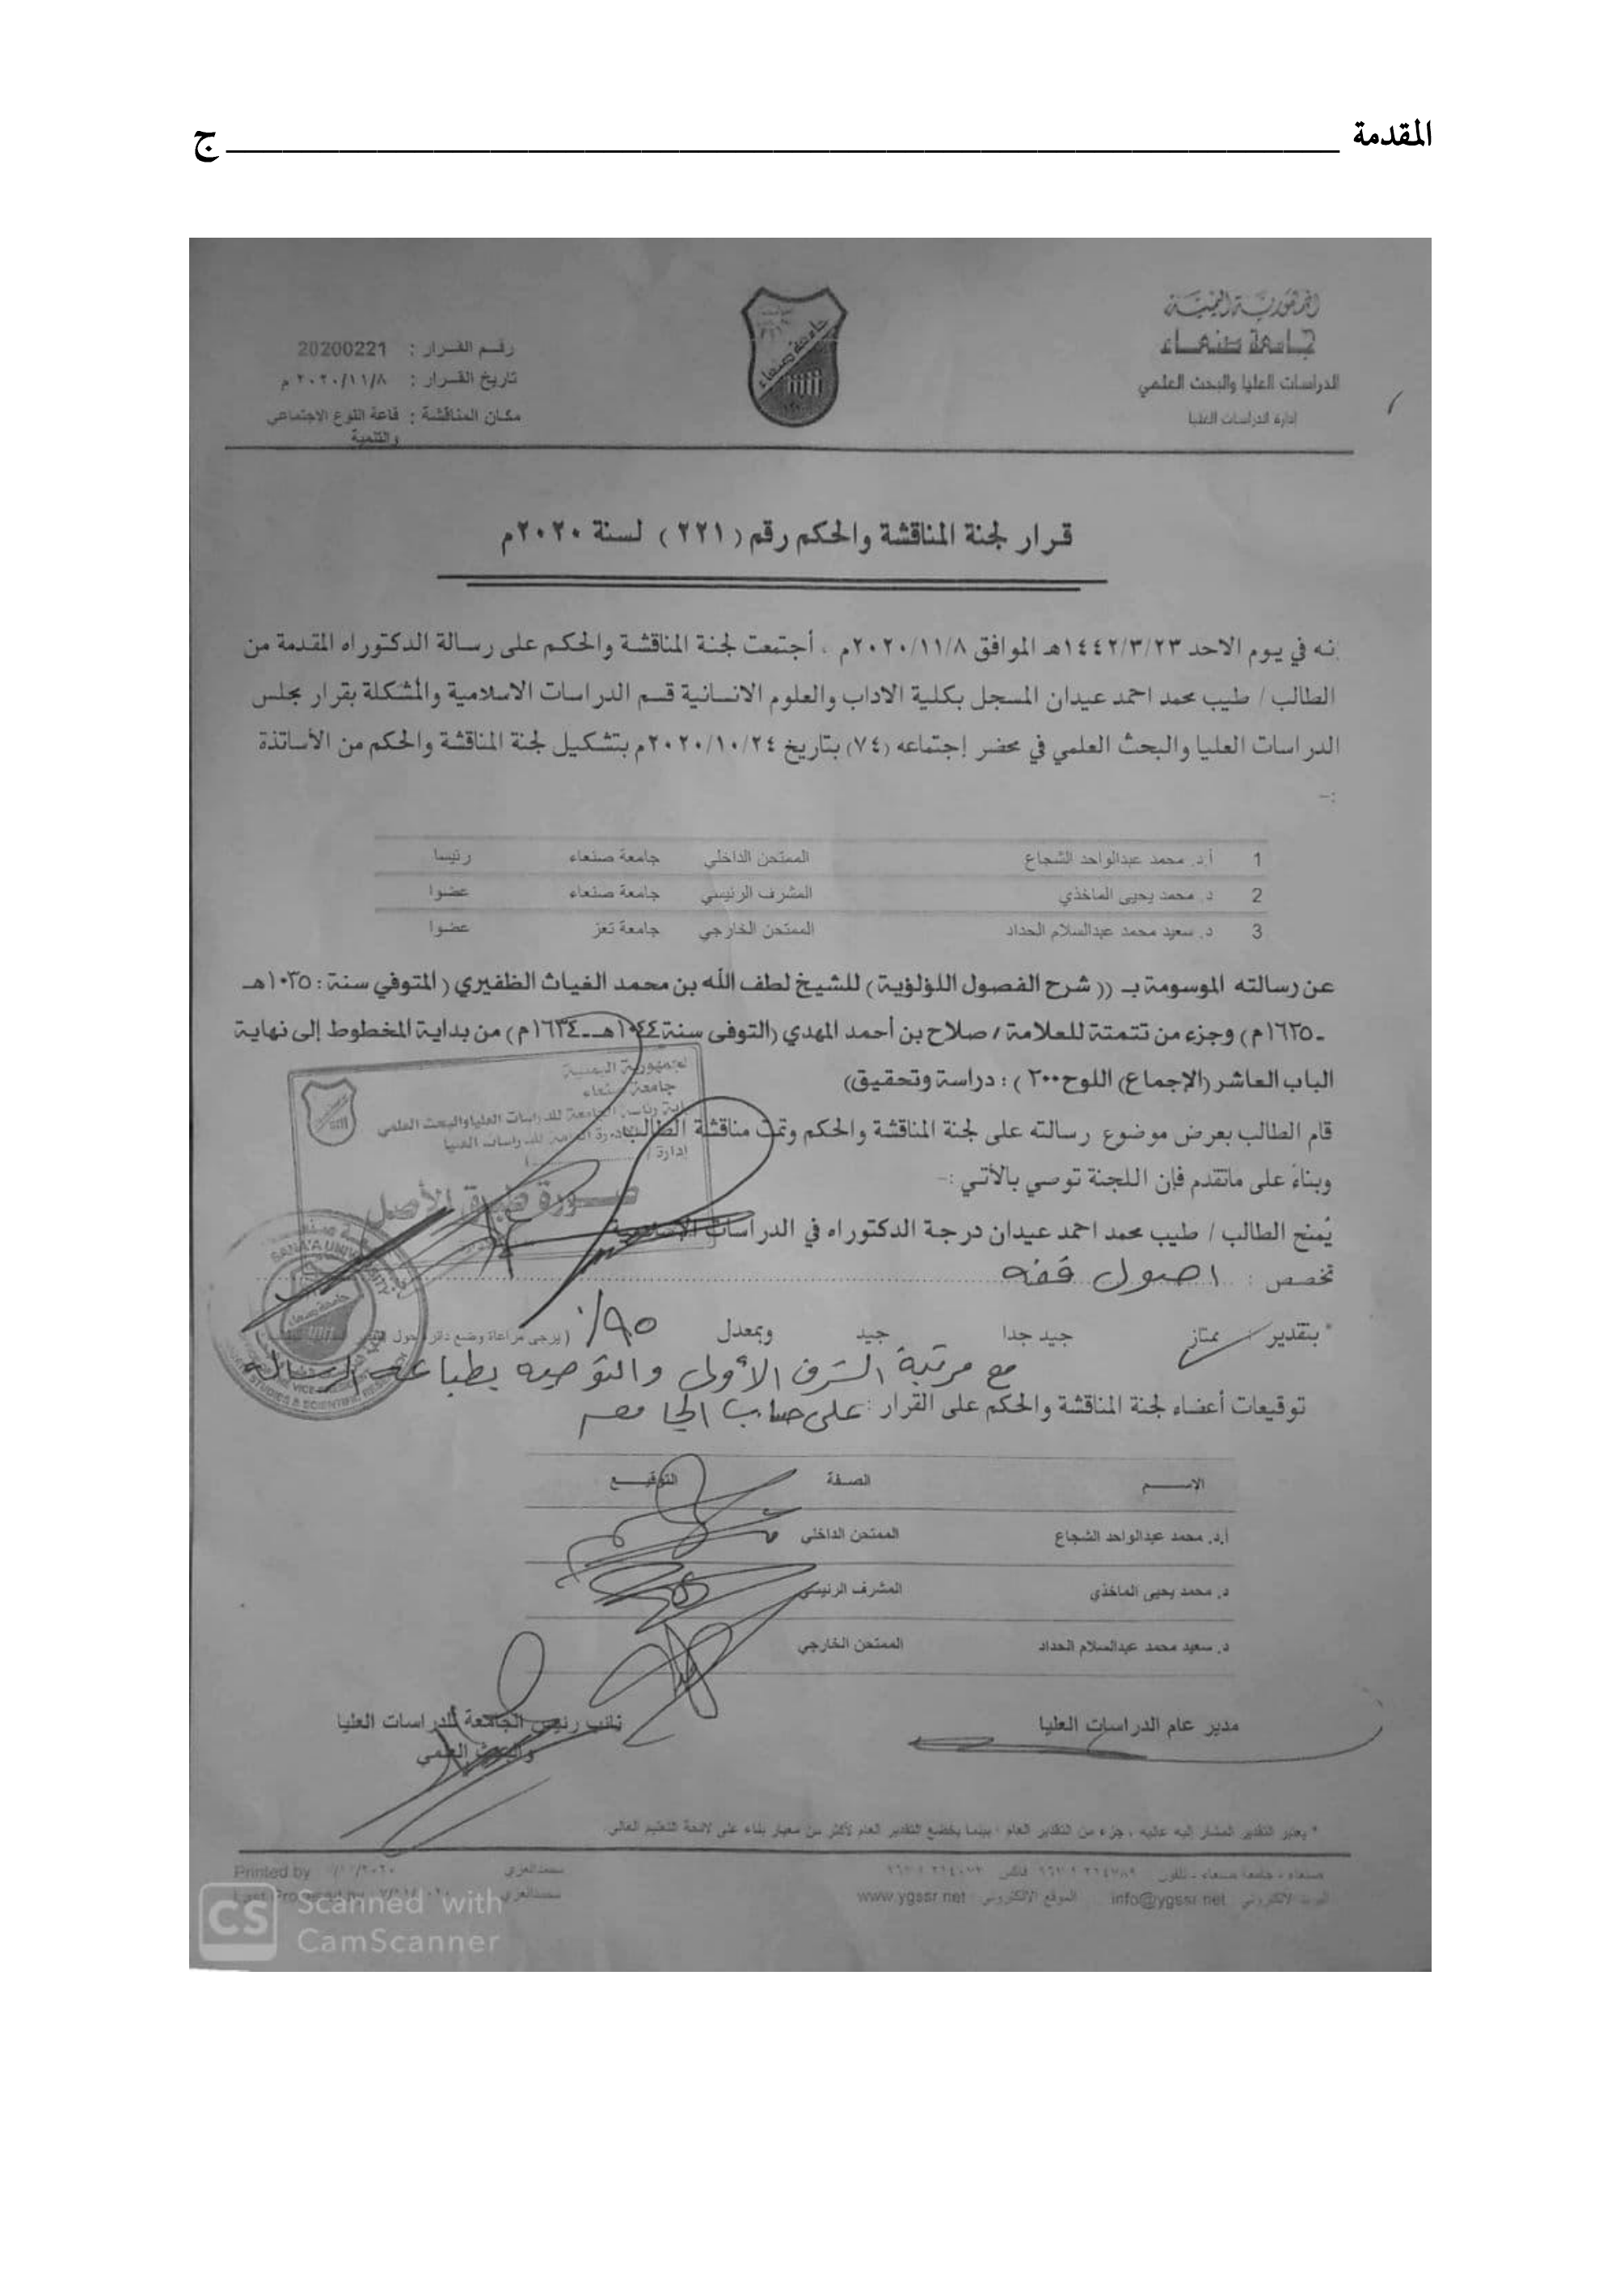 المقدمة ج
الجمهورية اليمنية
جامعة صنعاء
الدراسات العليا والبحث العلمي
إدارة الدراسات العليا
جامعة صنعاء
رقم القرار : 20200221
تاريخ القرار : ٢٠٢٠/١١/٨ م
مكان المناقشة : قاعة النوع الاجتماعي
والتنمية
قرار لجنة المناقشة والحكم رقم ( ٢٢١ ) لسنة ٢٠٢٠م
إنه في يوم الاحد ١٤٤٢/٣/٢٣هـ الموافق ٢٠٢٠/١١/٨م ، أجتمعت لجنة المناقشة والحكم على رسالة الدكتوراه المقدمة من
الطالب / طيب محمد احمد عيدان المسجل بكلية الاداب والعلوم الانسانية قسم الدراسات الاسلامية والمشكلة بقرار مجلس
الدراسات العليا والبحث العلمي في محضر إجتماعه (٧٤) بتاريخ ٢٠٢٠/١٠/٢٤م بتشكيل لجنة المناقشة والحكم من الأساتذة
:-
1 أ.د. محمد عبدالواحد الشجاع الممتحن الداخلي جامعة صنعاء رئيسا
2 د. محمد يحيى الماخذي المشرف الرئيسي جامعة صنعاء عضوا
3 د. سعيد محمد عبدالسلام الحداد الممتحن الخارجي جامعة تعز عضوا
عن رسالته الموسومة بـ (( شرح الفصول اللؤلؤية) للشيخ لطف الله بن محمد الغياث الظفيري ( المتوفي سنة : ١٠٣٥هـ
ـ ١٦٢٥م) وجزء من تتمتة للعلامة / صلاح بن أحمد المهدي (التوفى سنة ١٠٤٤هـ ـ ١٦٣٤م) من بداية المخطوط إلى نهاية
الباب العاشر (الإجماع) اللوح ٢٠٠ ) : دراسة وتحقيق)
قام الطالب بعرض موضوع رسالته على لجنة المناقشة والحكم وتمت مناقشة الطالب
وبناءً على ماتقدم فإن اللجنة توسي بالأتي :-
يُمنح الطالب / طيب محمد احمد عيدان درجة الدكتوراه في الدراسات الاسلامية
تخصص : اصول فقه
* بتقدير : ممتاز جيد جدا جيد وبمعدل ٩٥٪ (يرجى مراعاة وضع دائرة حول
مع مرتبة الشرف الأولى والتوصيه بطباعه الرساله
توقيعات أعضاء لجنة المناقشة والحكم على القرار : على حساب الجامعه
الجمهورية اليمنية
جامعة صنعاء
صورة طبق الأصل
SANA'A UNIVERSITY
الاسم الصفة التوقيع
أ.د. محمد عبدالواحد الشجاع الممتحن الداخلي
د. محمد يحيى الماخذي المشرف الرئيسي
د. سعيد محمد عبدالسلام الحداد الممتحن الخارجي
مدير عام الدراسات العليا
نائب رئيس الجامعة للدراسات العليا
والبحث العلمي
* يعتبر التقدير المشار إليه عاليه ، جزء من التقدير العام ؛ بينما يخضع التقدير العام لأكثر من معيار بناء على لائحة التعليم العالي.
صنعاء - جامعة صنعاء - تلفون فاكس
info@ygssr.net الموقع الالكتروني : www.ygssr.net
Printed by
CS Scanned with
CamScanner